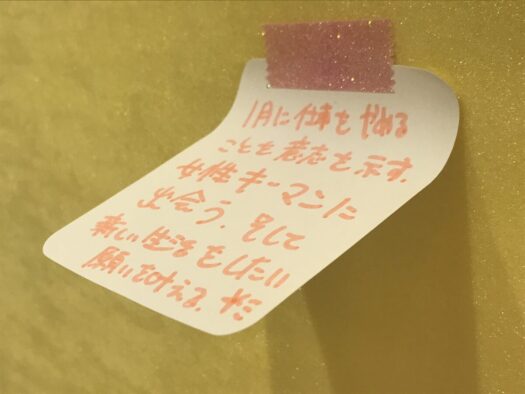 1月に仕事をやめる
ことを意志を示す.
女性キーマンに
出会う.そして
新しい生活をしたい
願いを叶える.